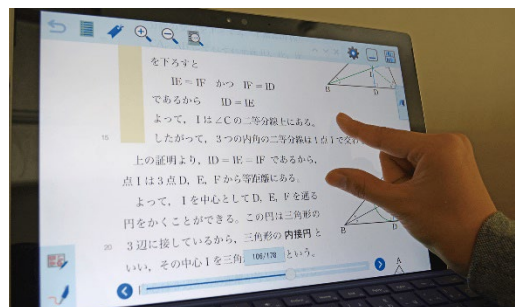 を下ろすと
IE=IF かつ IF=ID
であるから ID=IE
よって，Iは∠Cの二等分線上にある。
15 したがって，3つの内角の二等分線は1点Iで交わ
上の証明より，ID=IE=IF であるから，
点Iは3点D，E，Fから等距離にある。
よって，Iを中心としてD，E，Fを通る
円をかくことができる。この円は三角形の
20 3辺に接しているから，三角形の内接円と
いい，その中心Iを三角 という。
106/178
B D
B D
A